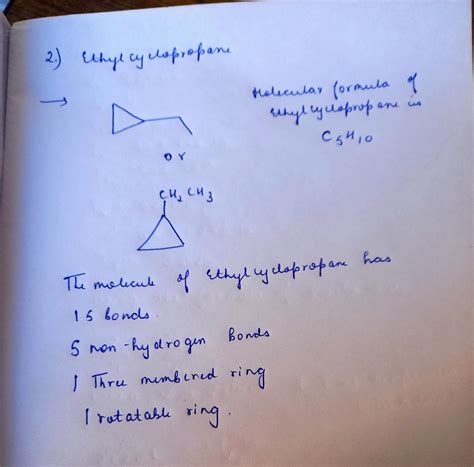 2.) Ethylcyclopropane
Molecular formula of
Ethylcyclopropane is
C5H10
or
CH2 CH3
The molecule of Ethylcyclopropane has
15 bonds.
5 non-hydrogen bonds
1 Three membered ring
1 rotatable ring.